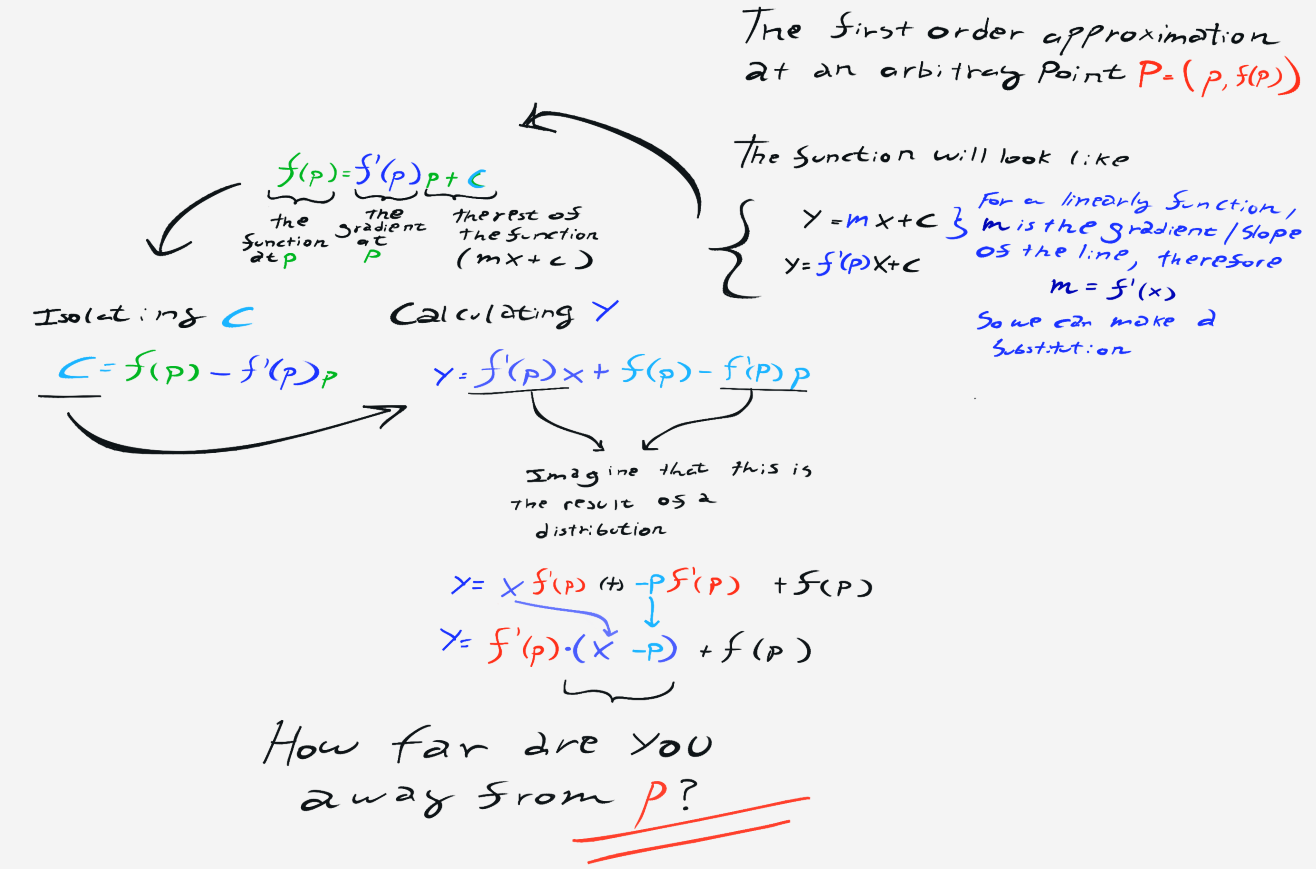 The first order approximation
at an arbitray Point P=(p, f(p))
The function will look like
y = mx+c
y=f'(p)x+c
For a linearly function,
m is the gradient/slope
of the line, therefore
m = f'(x)
So we can make a
substitution
f(p)=f'(p)p+c
the
function
at p
the
gradient
at
p
the rest of
the function
(mx+c)
Isolating C
C=f(p)-f'(p)p
Calculating Y
y=f'(p)x+f(p)-f'(p)p
Imagine that this is
the result of a
distribution
y= x f'(p) (+) -p f'(p) +f(p)
y= f'(p)·(x -p) + f(p)
How far are you
away from p?